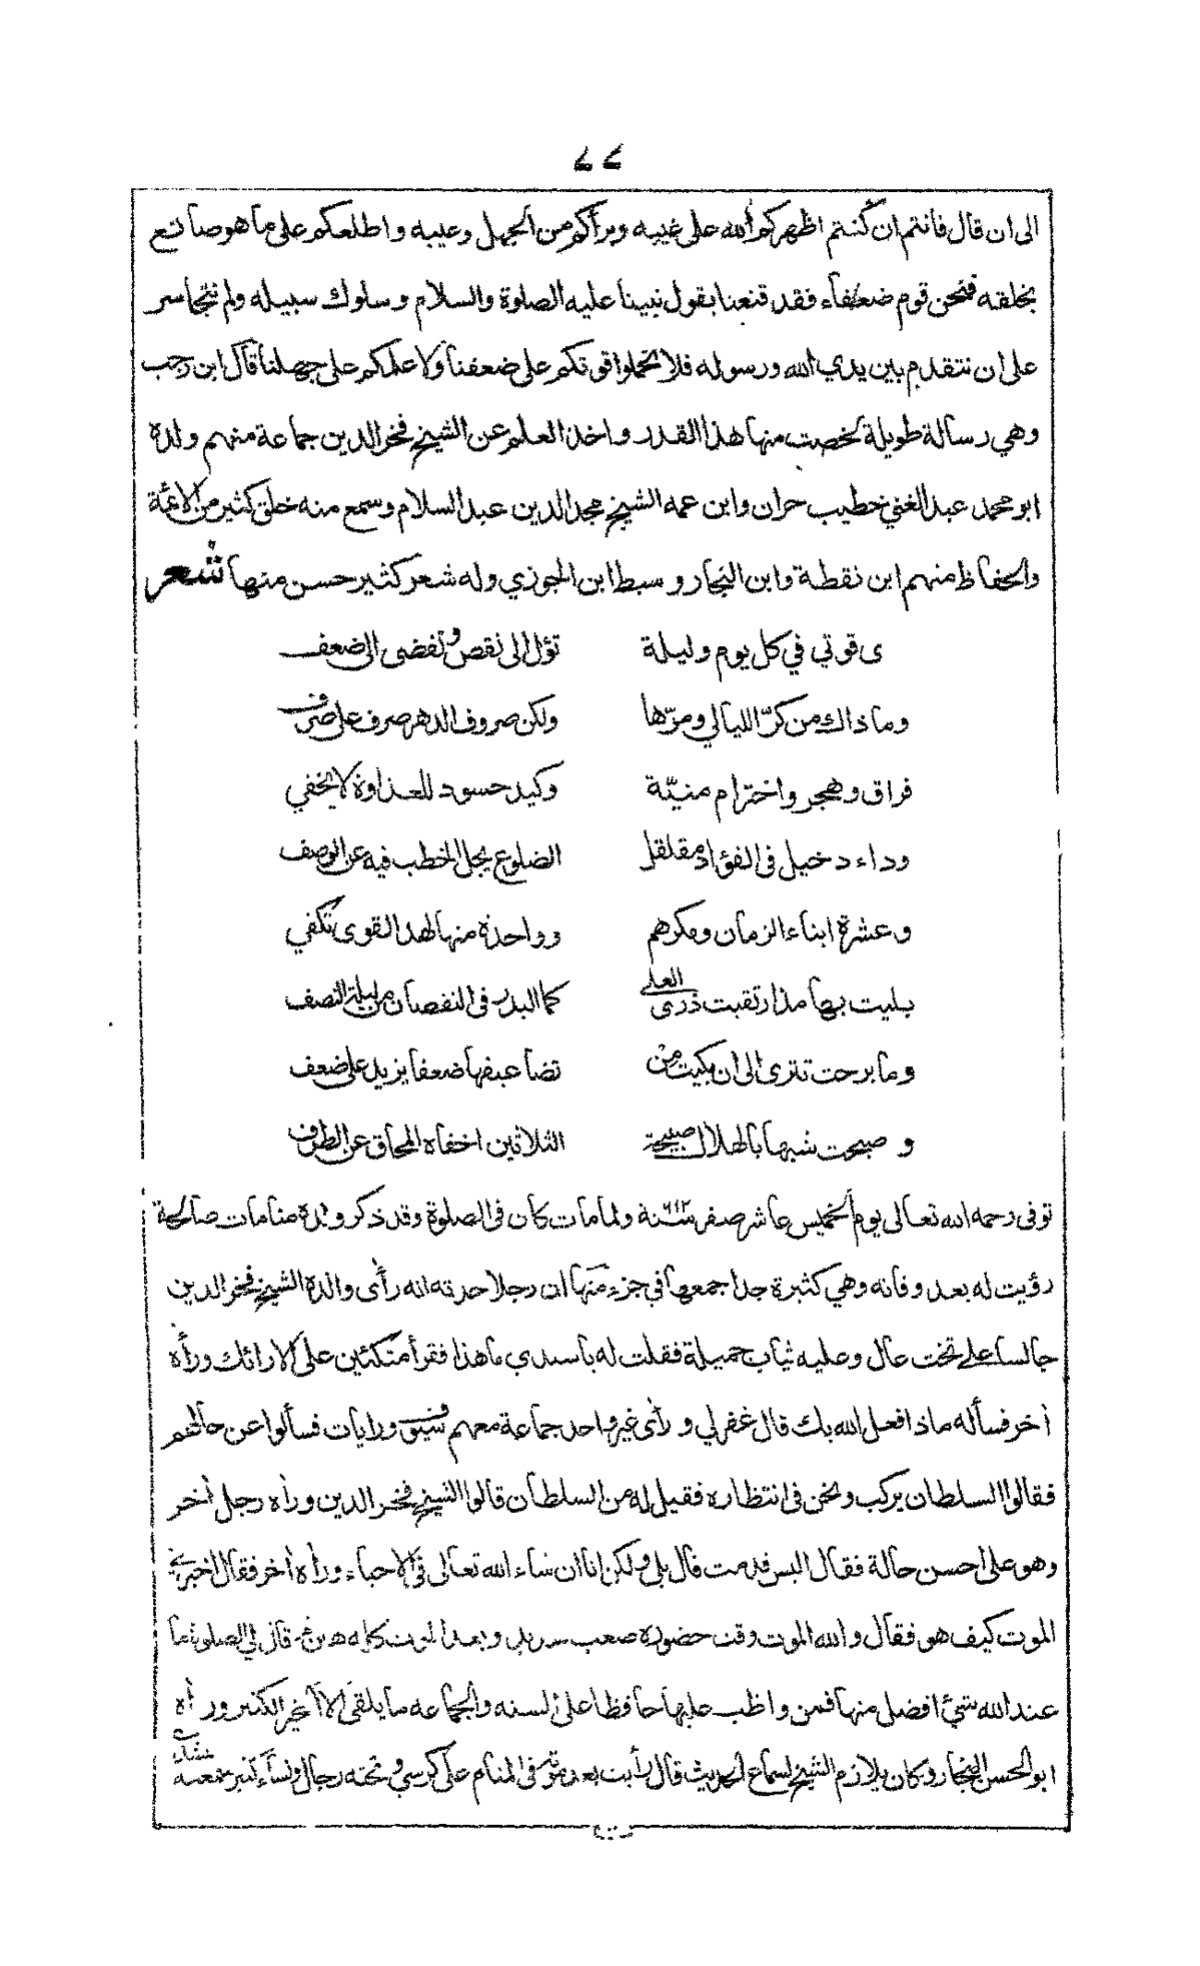 الى ان قال فانتم ان كنتم اظهركم الله على غيبه وبرأكم من الجهل وعيبه واطلعكم على ما هو صانع
بخلقه فنحن قوم ضعفاء فقد قنعنا بقول نبينا عليه الصلوة والسلام وسلوك سبيله ولم نتجاسر
على ان نتقدم بين يدي الله ورسوله فلا تحملوا قوتكم على ضعفنا ولا علمكم على جهلنا قال ابن رجب
وهي رسالة طويلة لخصت منها هذا القدر واخذ العلم عن الشيخ فخر الدين جماعة منهم ولده
ابو محمد عبد الغني خطيب حران وابن عمه الشيخ مجد الدين عبد السلام وسمع منه خلق كثير من الائمة
والحفاظ منهم ابن نقطة وابن النجار وسبط ابن الجوزي وله شعر كثير حسن منها شعر
ى قوتي في كل يوم وليلة تؤل الى نقص وتفضى الى ضعف
وما ذاك من كرّ الليالي ومرّها ولكن صروف الدهر صرف على صرف
فراق وهجر واخترام منيّة وكيد حسود للعداوة لا يخفي
وداء دخيل في الفؤاد مقلقل الضلوع يجل الخطب فيه عن الوصف
وعشرة ابناء الزمان ومكرهم وواحدة منها لهد القوى تكفي
بليت بها مذ ارتقبت ذرى العلى كما البدر في النقصان من ليلة النصف
وما برحت تترى الى ان بكيت من تضاعيفها ضعفا يزيد على ضعف
و صبحت شبها بالهلال صبيحة الثلاثين اخفاه المحاق عن الطرف
توفى رحمه الله تعالى يوم الخميس عاشر صفر سنة ٦١٢ ولما مات كان في الصلوة وقد ذكر ولده منامات صالحة
رؤيت له بعد وفاته وهي كثيرة جدا جمعها في جزء منها ان رجلا حدثه انه رأى والده الشيخ فخر الدين
جالسا على تخت عال وعليه ثياب جميلة فقلت له يا سيدي ما هذا فقرأ متكئين على الارائك ورأه
أخر فسأله ماذا فعل الله بك قال غفر لي ورأى غير واحد جماعة معهم ورايات فسألوا عن حالهم
فقالوا السلطان يركب ونحن في انتظاره فقيل له من السلطان قالوا الشيخ فخر الدين ورأه رجل أخر
وهو على احسن حالة فقال اليس قد مت قال بلى ولكن انا ان شاء الله تعالى في الاحياء ورأه أخر فقال اخبرني
الموت كيف هو فقال والله الموت وقت حضوره صعب شديد وبعد الموت كله هين قال لي الصلوة ما
عند الله شئ افضل منها فمن واظب عليها حافظا على السنه والجماعه ما يلقى الا الخير الكثير ورأه
ابو الحسن النجار وكان يلازم الشيخ لسماع الحديث قال رأيت بعد موته في المنام على كرسي وتحته رجال ونساء كثير